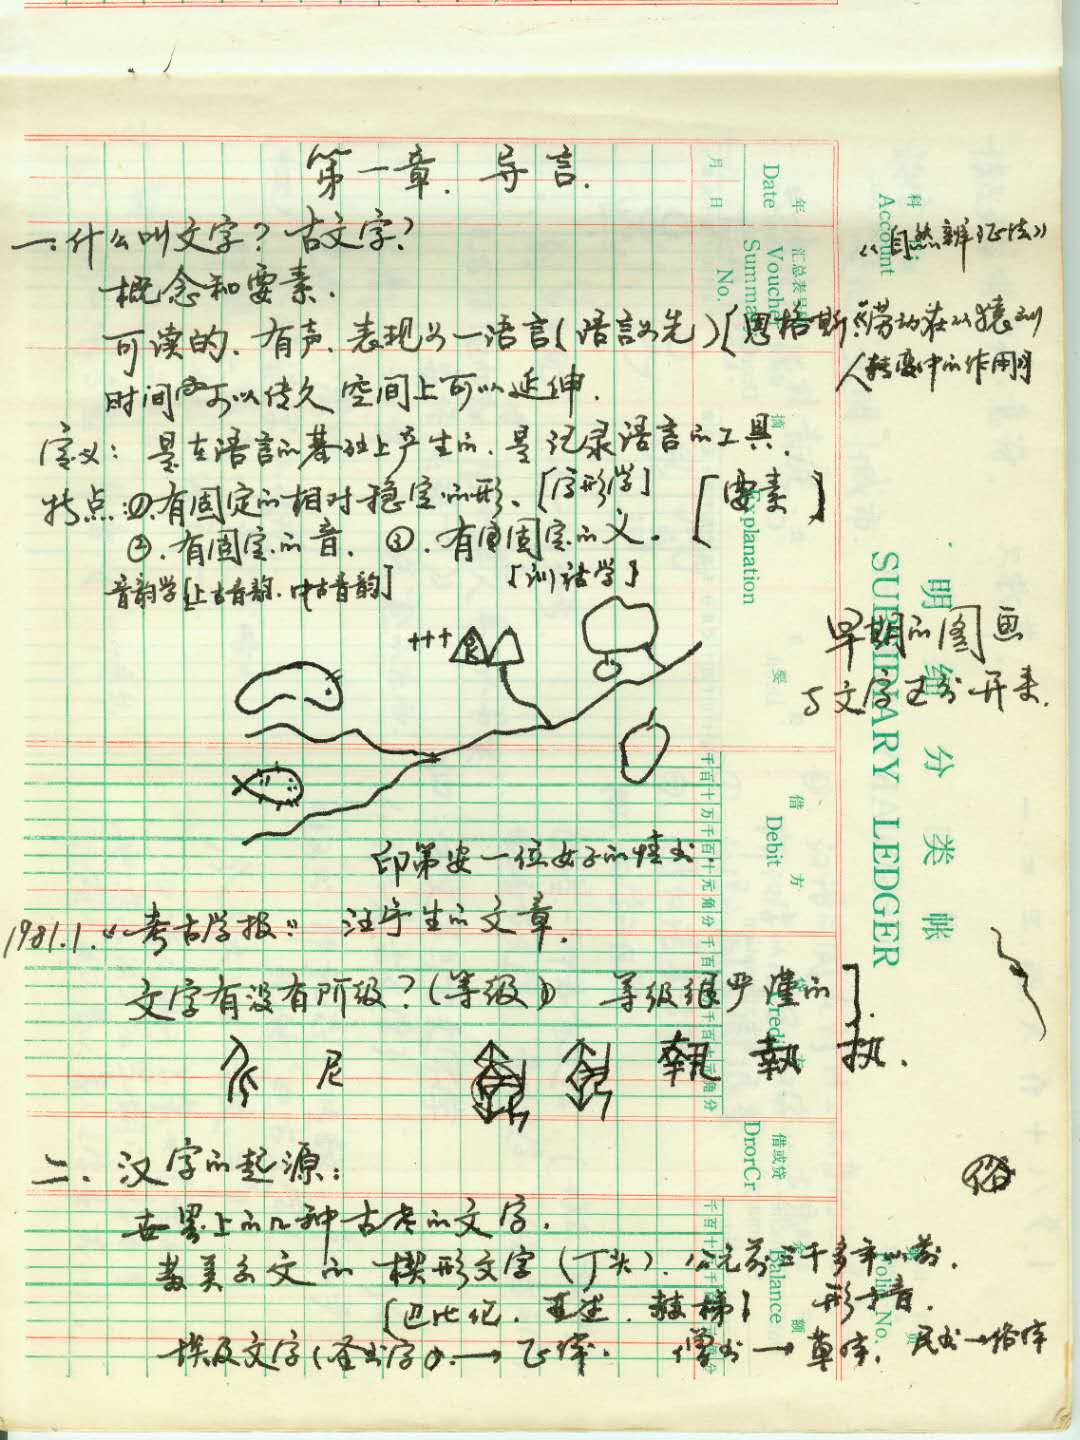 第一章. 导言.
一. 什么叫文字? 古文字?
《自然辨证法》
概念和要素.
可读的. 有声. 表现为一语言(语言为先) [恩格斯《劳动在从猿到
人转变中的作用》
时间可以传久 空间上可以延伸.
定义: 是在语言的基础上产生的. 是记录语言的工具.
特点: ①有固定的相对稳定的形. [字形学] [要素]
②. 有固定的音. ③. 有固定的义.
音韵学[上古音韵. 中古音韵] [训诂学]
早期的图画
与文字区分开来.
印第安一位女子的情书.
1981.1. 《考古学报》 汪宁生的文章.
文字有没有阶级? (等级) 等级很严谨的].
尼 執 執 执.
二. 汉字的起源:
俗
世界上的几种古老的文字.
美索文的楔形文字 (丁头). 公元前三千多年以前.
[巴比伦. 亚述. 赫梯] 形于音.
埃及文字(圣书字). → 正体. 僧书 → 草体. 民书 → 俗体
科 Account
年 月 日 Date
汇总表号 Voucher Summa No.
摘要 Explanation
借方 Debit
Credit
借或贷 DrorCr
余额 Balance
Folio No.
千百十万千百十元角分
明细分类帐
SUBSIDIARY LEDGER